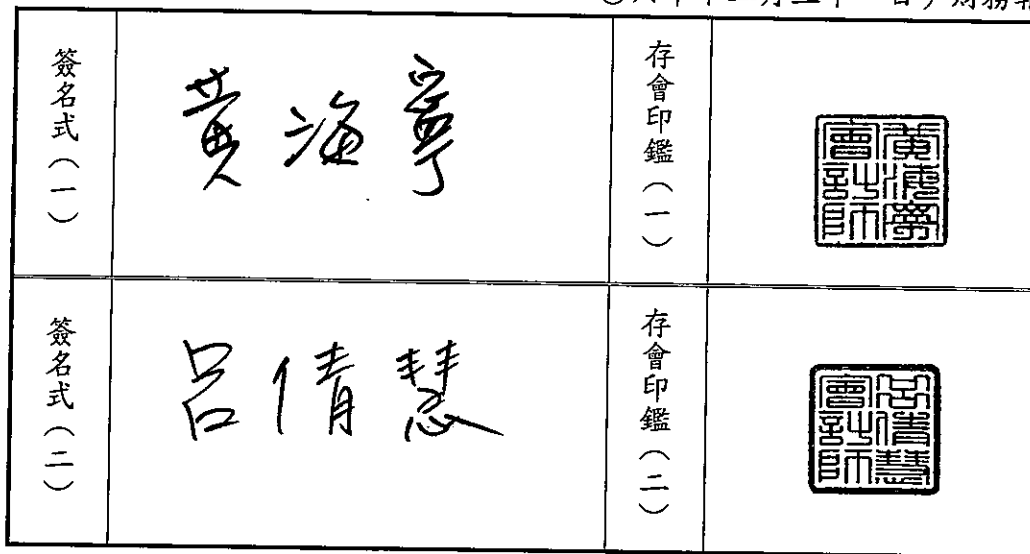 簽名式(一)
黃海寧
存會印鑑(一)
黃海寧
會計師
簽名式(二)
呂倩慧
存會印鑑(二)
呂倩慧
會計師